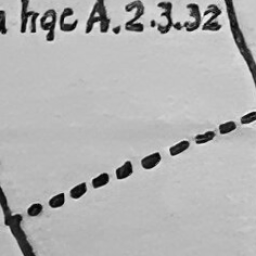 hqc A.2.3.32